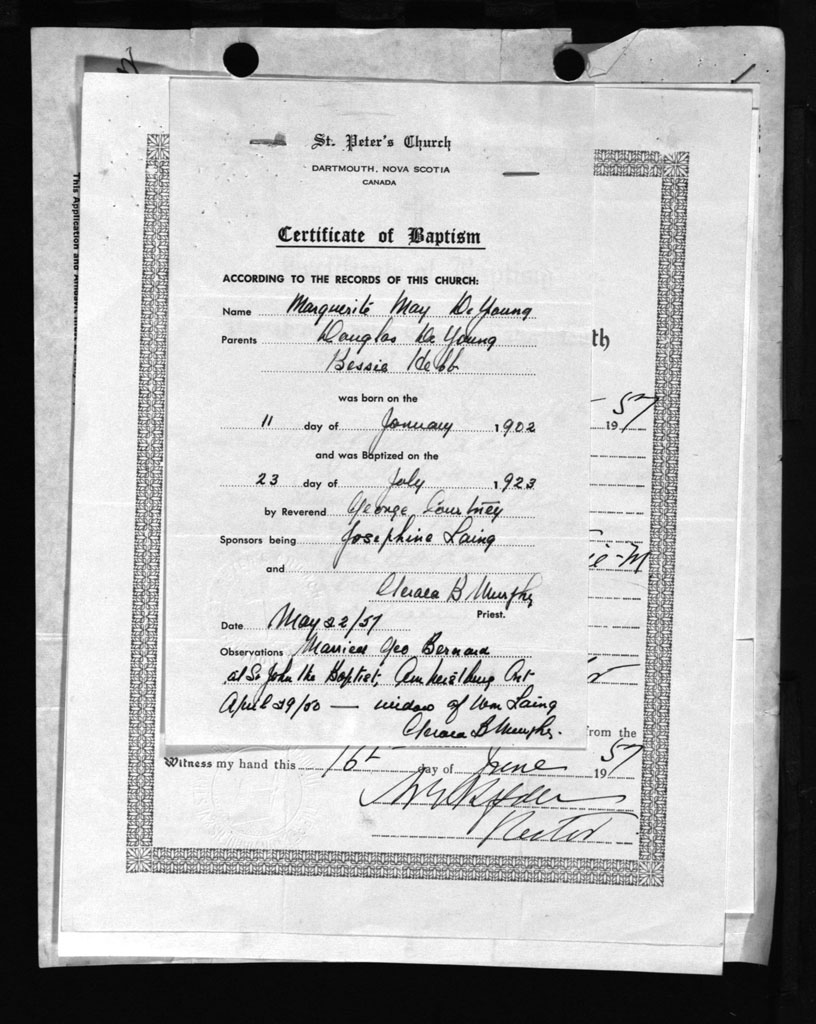 St. Peter's Church
DARTMOUTH, NOVA SCOTIA
CANADA
Certificate of Baptism
ACCORDING TO THE RECORDS OF THIS CHURCH:
Name Marguerite May DeYoung
Parents Douglas De Young
Bessie Hebb
was born on the
11 day of January 1902
and was Baptized on the
23 day of July 1923
by Reverend George Courtney
Sponsors being Josephine Laing
and
B Murphy
Priest.
Date May 22/57
Observations Married Geo Bernard
at St John the Baptist, Amherstburg Ont
April 29/50 — widow of Wm Laing
B Murphy.
This Application and
th
57
19
ie-M
from the
Witness my hand this 16th day of June 1957
Rector